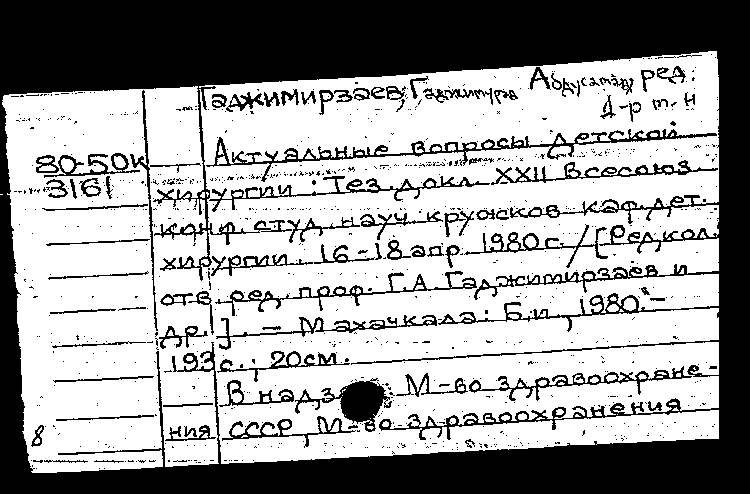 Гаджимирзаев, Гаджимурад Абдусамад, ред.
д-р т. н
80-50к Актуальные вопросы детской
3161 хирургии : Тез. докл. XXII Всесоюз.
конф. студ. науч. кружков каф. дет.
хирургии. 16-18 апр. 1980 г. / [Ред. кол.
отв. ред. проф. Г.А. Гаджимирзаев и
др.]. - Махачкала : Б.и., 1980. -
193 с. ; 20 см.
В надз М-во здравоохране-
8 ния СССР, М-во здравоохранения